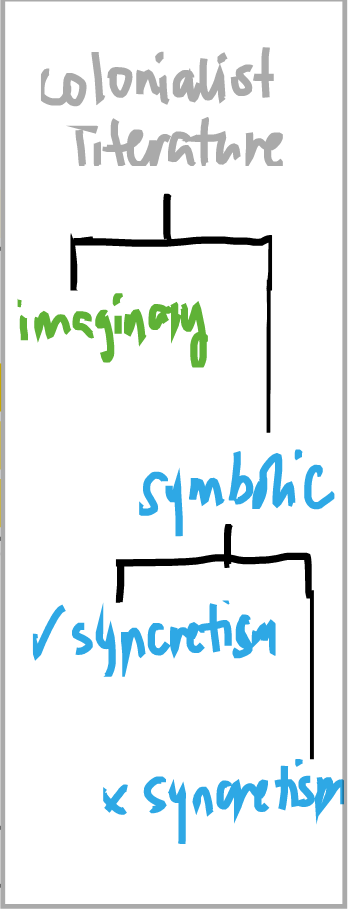 colonialist
Literature
imaginary
symbolic
✓ syncretism
× syncretism